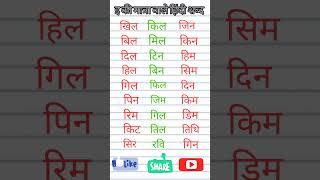 इ की मात्रा वाले हिंदी शब्द
खिल किल जिन
बिल मिल किन
दिल टिन हिम
हिल बिन सिम
गिल फिल दिन
पिन जिम किम
रिम गिल डिम
किट तिल तिथि
सिर रवि गिन
Like SHARE
हिल
गिल
पिन
रिम
सिम
दिन
किम
डिम